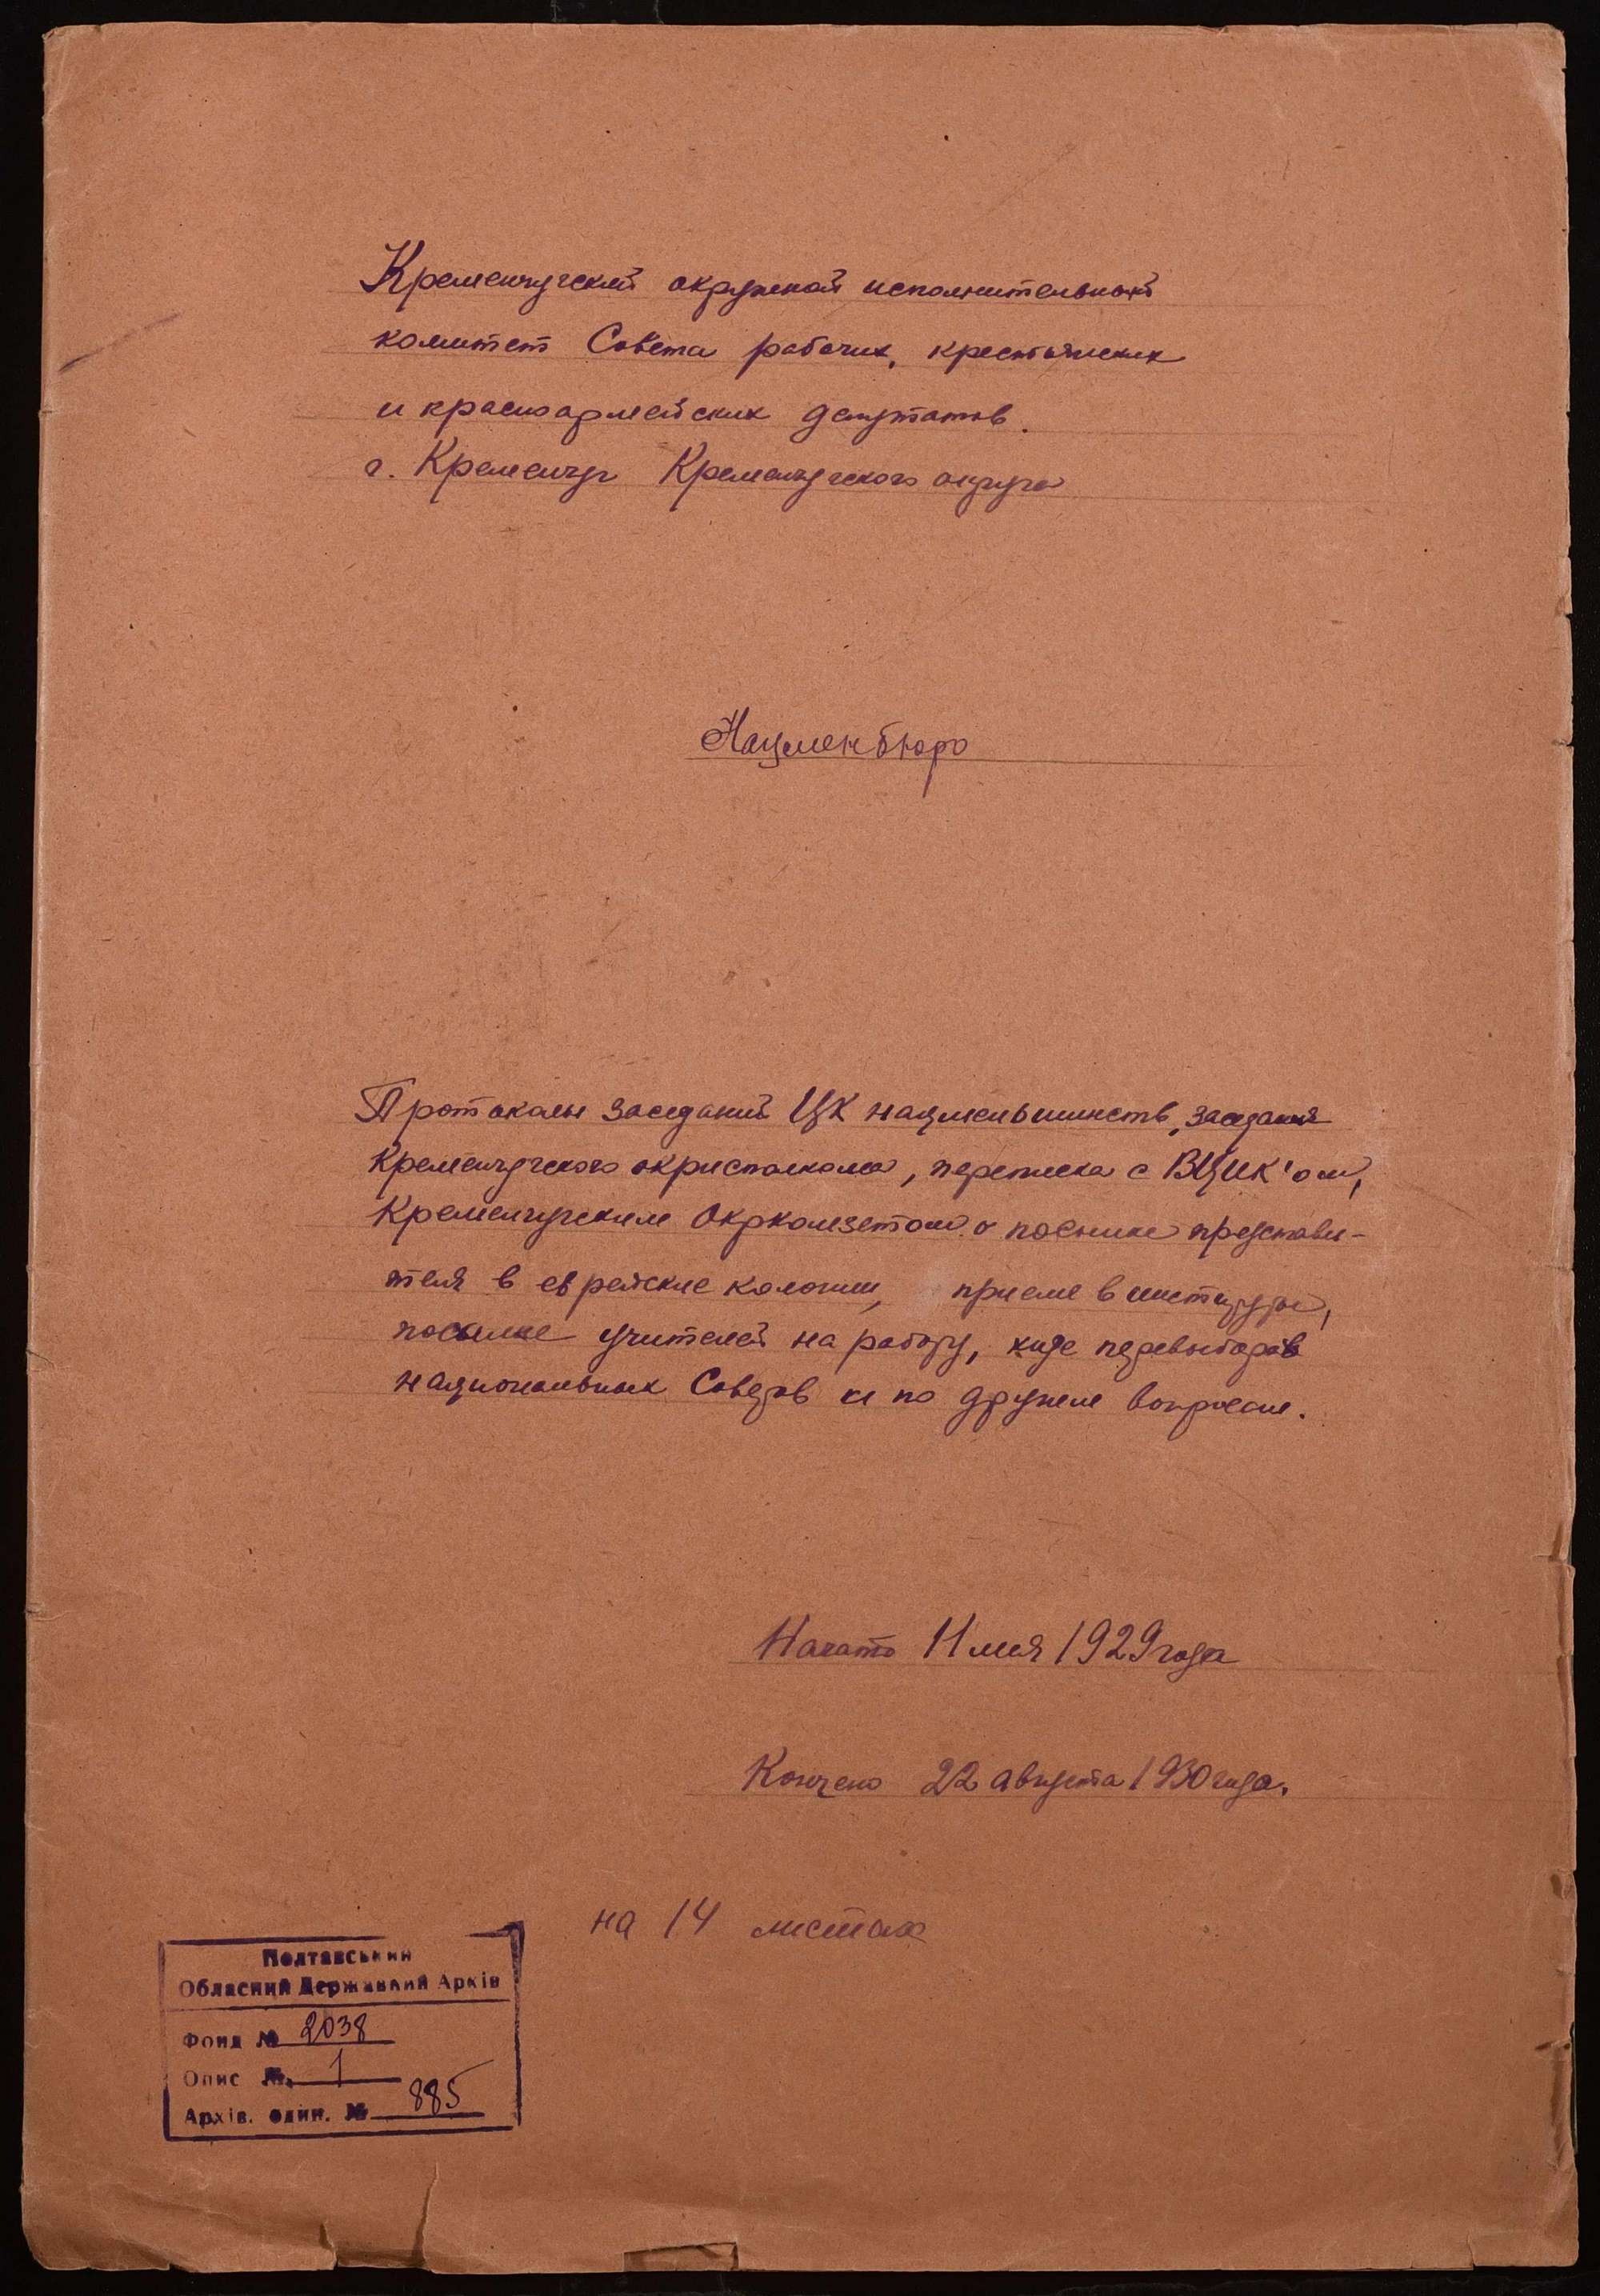 Кременчугский окружной исполнительный
комитет Совета рабочих, крестьянских
и красноармейских депутатов.
г. Кременчуг Кременчугского округа
Нацменбюро
Протоколы заседаний ЦК нацменьшинств, заседания
Кременчугского окрисполкома, переписка с ВЦИК'ом,
Кременчугским Окркомзетом о посылке представи-
теля в еврейские колонии, приеме в институты,
посылке учителей на работу, ходе перевыборов
национальных Советов и по другим вопросам.
Начато 11 мая 1929 года
Кончено 22 августа 1930 года.
на 14 листах
Полтавський
Обласний Державний Архів
Фонд № 2038
Опис № 1
Архів. один. № 885